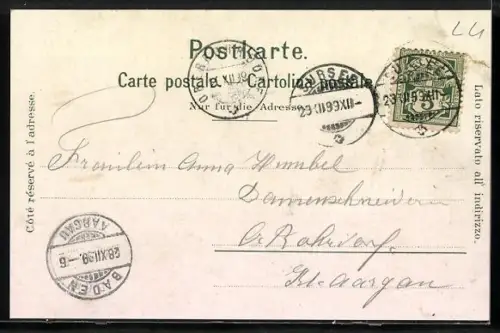 LU
Postkarte.
Carte postale. Cartolina postale
Nur für die Adresse.
Côté réservé à l'adresse.
Lato riservato all' indirizzo.
SURSEE
29 XII 99 XII
SURSEE
5
Fräulein Anna
Damenschneiderin
O. Rohrdorf.
Kt. Aargau
BADEN
AARGAU
28 XII 99. - 6